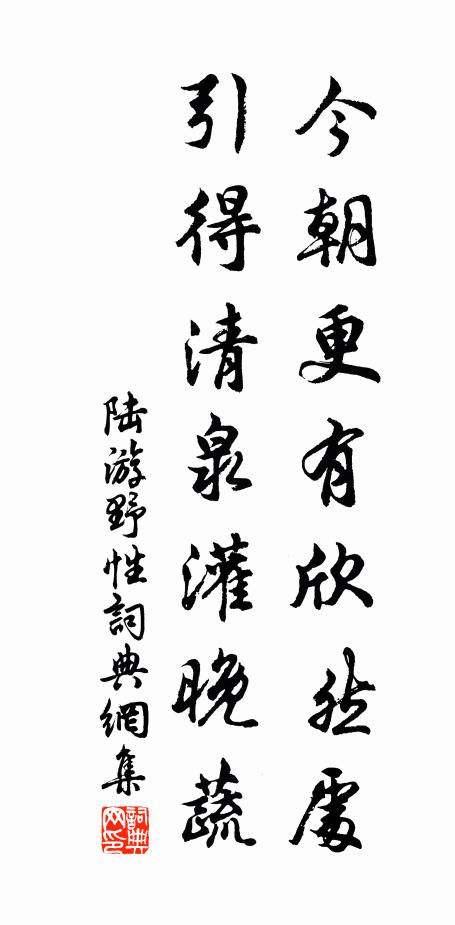 今朝更有欣然處
引得清泉灌晚蔬
陆游野性詞典網集
詞典网印